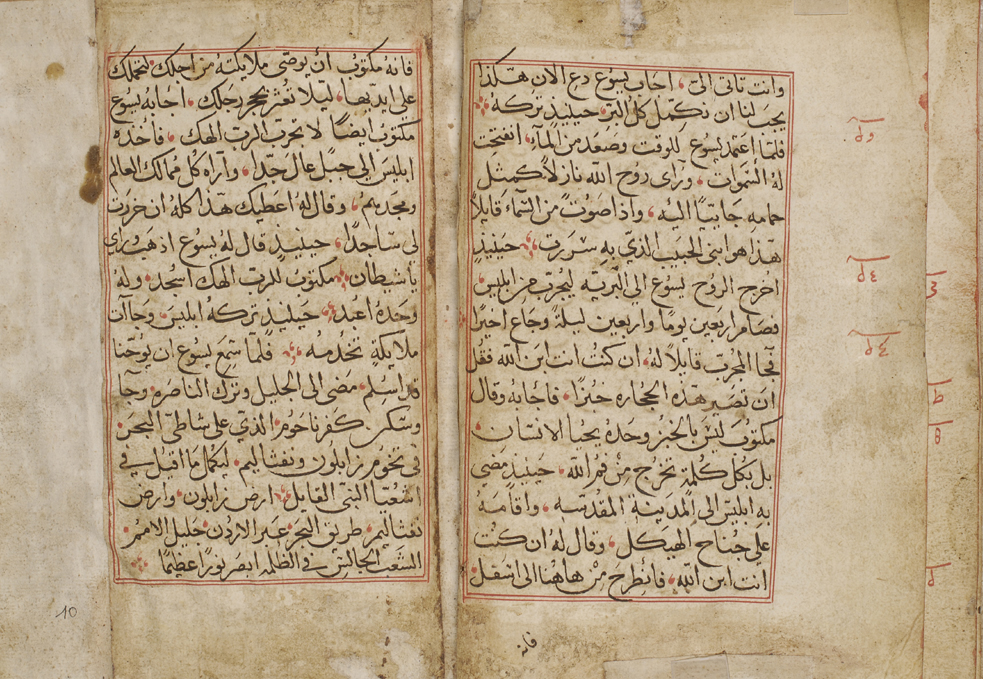 وانت تاتى الىّ، اجاب يسوع دع الان هكذا
يجب لنا ان نكتمل كل البر، حينيذٍ تركه
فلمّا اعتمد يسوع للوقت وصعد من المآء، انفتحت
له السموات، وراى روح الله نازلاً كمثل
حمامه جاييًا اليه، واذا صوت من السمآء قايلاً
هذا هو ابنى الحبيب الذى به سررت حينيذٍ
اخرج الروح يسوع الى البريه ليجرب من ابليس
وصام اربعين يومًا واربعين ليلة وجاع اخيرًا
فجا المجرب قايلاً له، ان كنت انت ابن الله فقل
ان تصير هذه الحجاره خبزًا، فاجابه وقال
مكتوب ليس بالخبز وحده يحيا الانسان
بل بكل كلمةٍ تخرج من فم الله، حينيذ مضى
به ابليس الى المدينة المقدسه، واقامه
على جناح الهيكل، وقال له ان كنت
انت ابن الله، فانطرح من هاهنا الى اسفل
فانه
فانه مكتوب ان يوصى ملايكته من اجلك، لتحملك
على ايديها، ليلا تعثر بحجر رجلك، اجابه يسوع
مكتوب ايضًا لا تجرب الرب الهك، فاخذه
ابليس الى جبل عال جدا، وآراه كل ممالك العالم
ومجدهم، وقال له اعطيك هذا كله ان خررت
لى ساجدا، حينيذٍ قال له يسوع اذهب وراى
ياشيطان، مكتوب للرب الهك اسجد، وله
وحده اعبد حينيذٍ تركه ابليس، وجاآت
ملايكة تخدمه فلمّا سمع يسوع ان يوحنا
قد اسلم، مضى الى الجليل وترك الناصره وجآ
وسكن كفرناحوم، الذي على شاطى البحر،
فى تخوم زابلون ونفثاليم، ليكمل ما اقيل في
اشعيا النبى القايل، ارض زابلون، وارض
نفثاليم، طريق البحر، عبر الاردن، جليل الامم،
الشعب الجالس في الظلمه ابصر نورًا عظيمًا
10